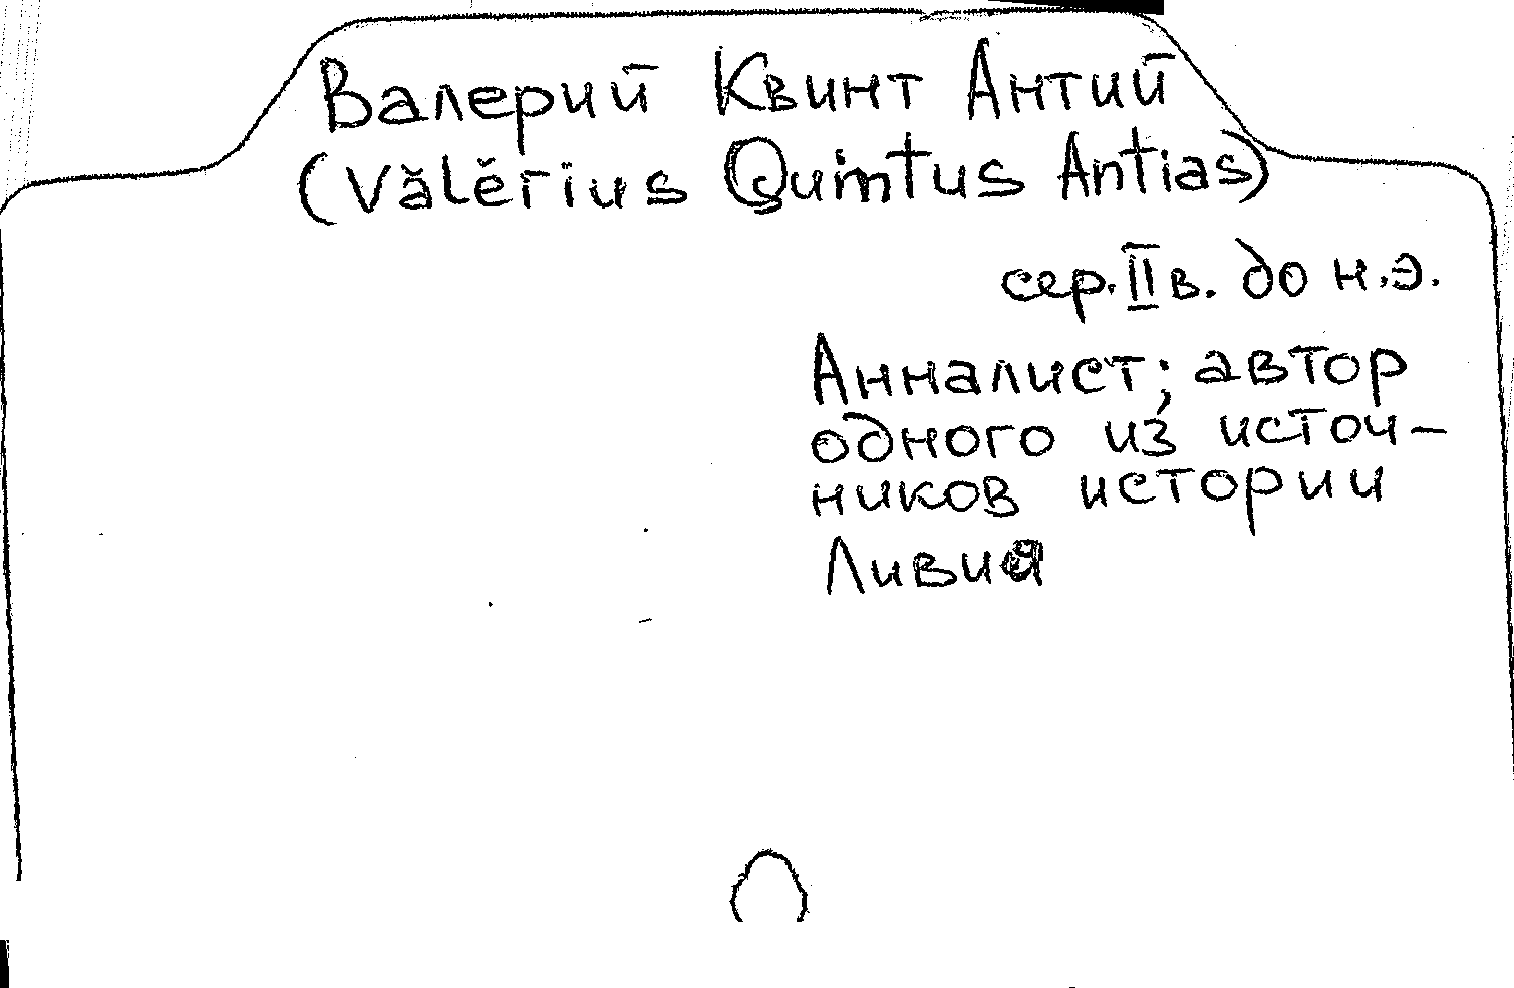 Валерий Квинт Антий
(Vălĕrius Quintus Antias)
сер. II в. до н.э.
Анналист; автор
одного из источ-
ников истории
Ливия